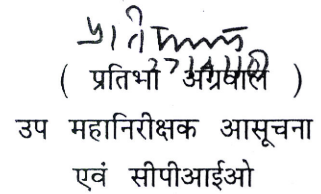 ( प्रतिभा अग्रवाल )
उप महानिरीक्षक आसूचना
एवं सीपीआईओ